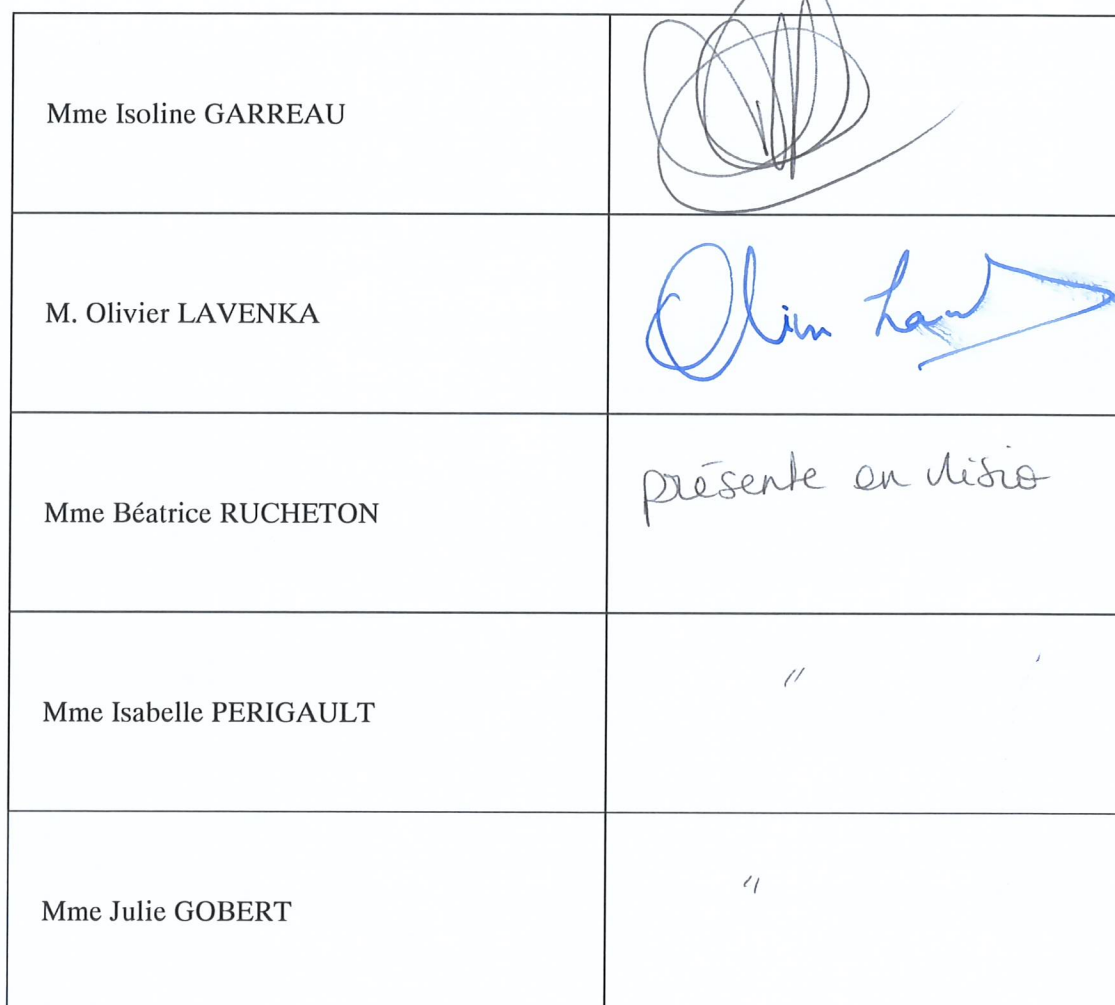 Mme Isoline GARREAU
M. Olivier LAVENKA
Mme Béatrice RUCHETON
présente en visio
Mme Isabelle PERIGAULT
"
Mme Julie GOBERT
"